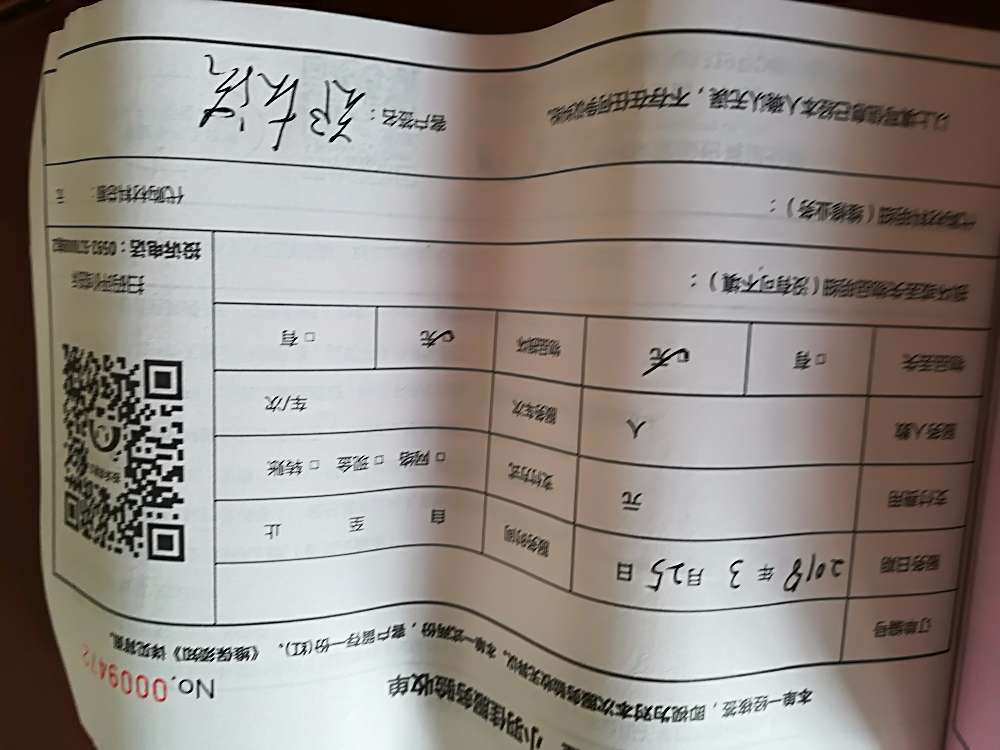 小羽佳服务验收单
No.0009472
本单一经核签，即视为对本次服务验收无异议。本单一式两份，客户留存一份(红)。《维保须知》详见背面。
订单编号
服务日期 2018年3月25日 服务时间 自 至 止
支付费用 元 支付方式 □网络 □现金 □转账
服务人数 人 服务车次 车/次
物品丢失 □有 □无 物品损坏 □无 □有
损坏或丢失物品明细（没有可不填）：
扫码评价/投诉
投诉电话：
代购材料明细（维修业务）： 代购材料总额： 元
以上填写信息已经本人确认无误，不存在任何争议。 客户签名：